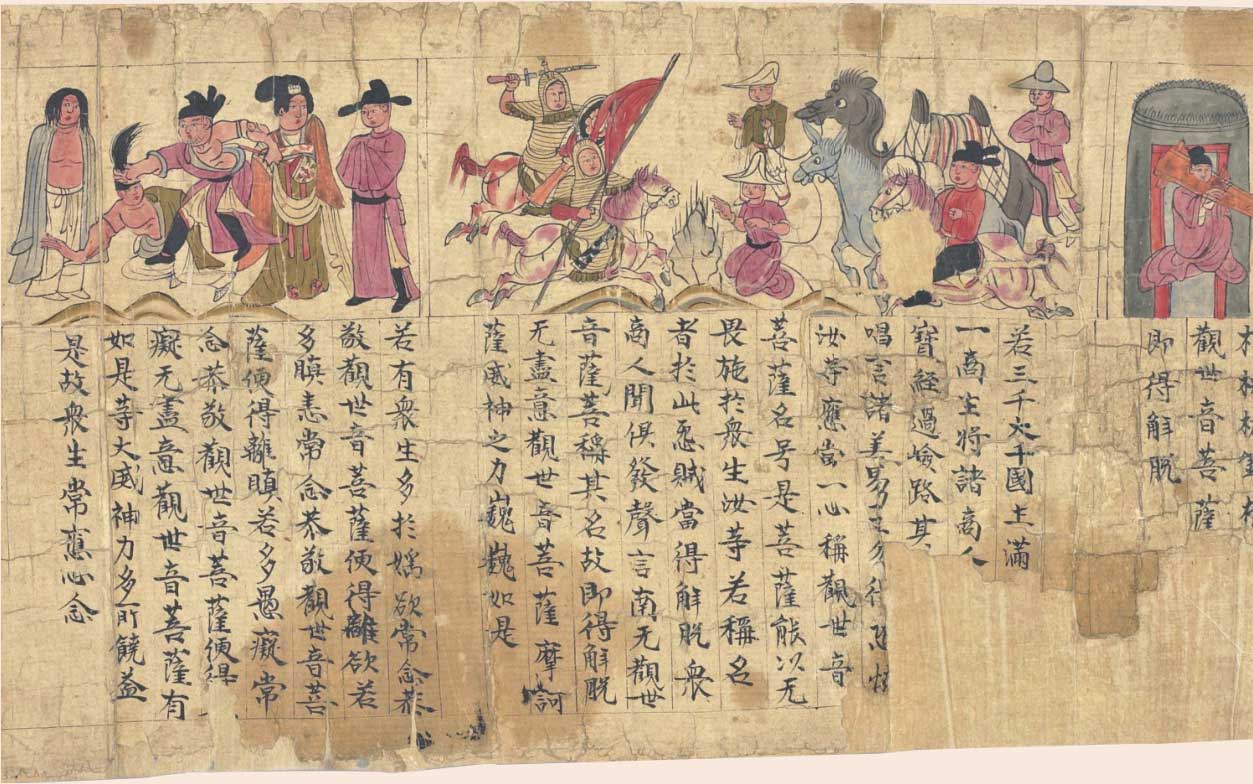 觀世音菩薩
即得解脫
若三千大千國土滿
一商主將諸商人
寶經過嶮路其
唱言諸善男
汝等應當一心稱觀世音
菩薩名号是菩薩能以无
畏施於衆生汝等若稱名
者於此惡賊當得解脫衆
商人聞俱發聲言南无觀世
音薩菩稱其名故即得解脫
无盡意觀世音菩薩摩訶
薩威神之力巍巍如是
若有衆生多於婬欲常念恭
敬觀世音菩薩便得離欲若
多瞋恚常念恭敬觀世音菩
薩便得離瞋若多愚癡常
念恭敬觀世音菩薩便得
癡无盡意觀世音菩薩有
如是等大威神力多所饒益
是故衆生常應心念